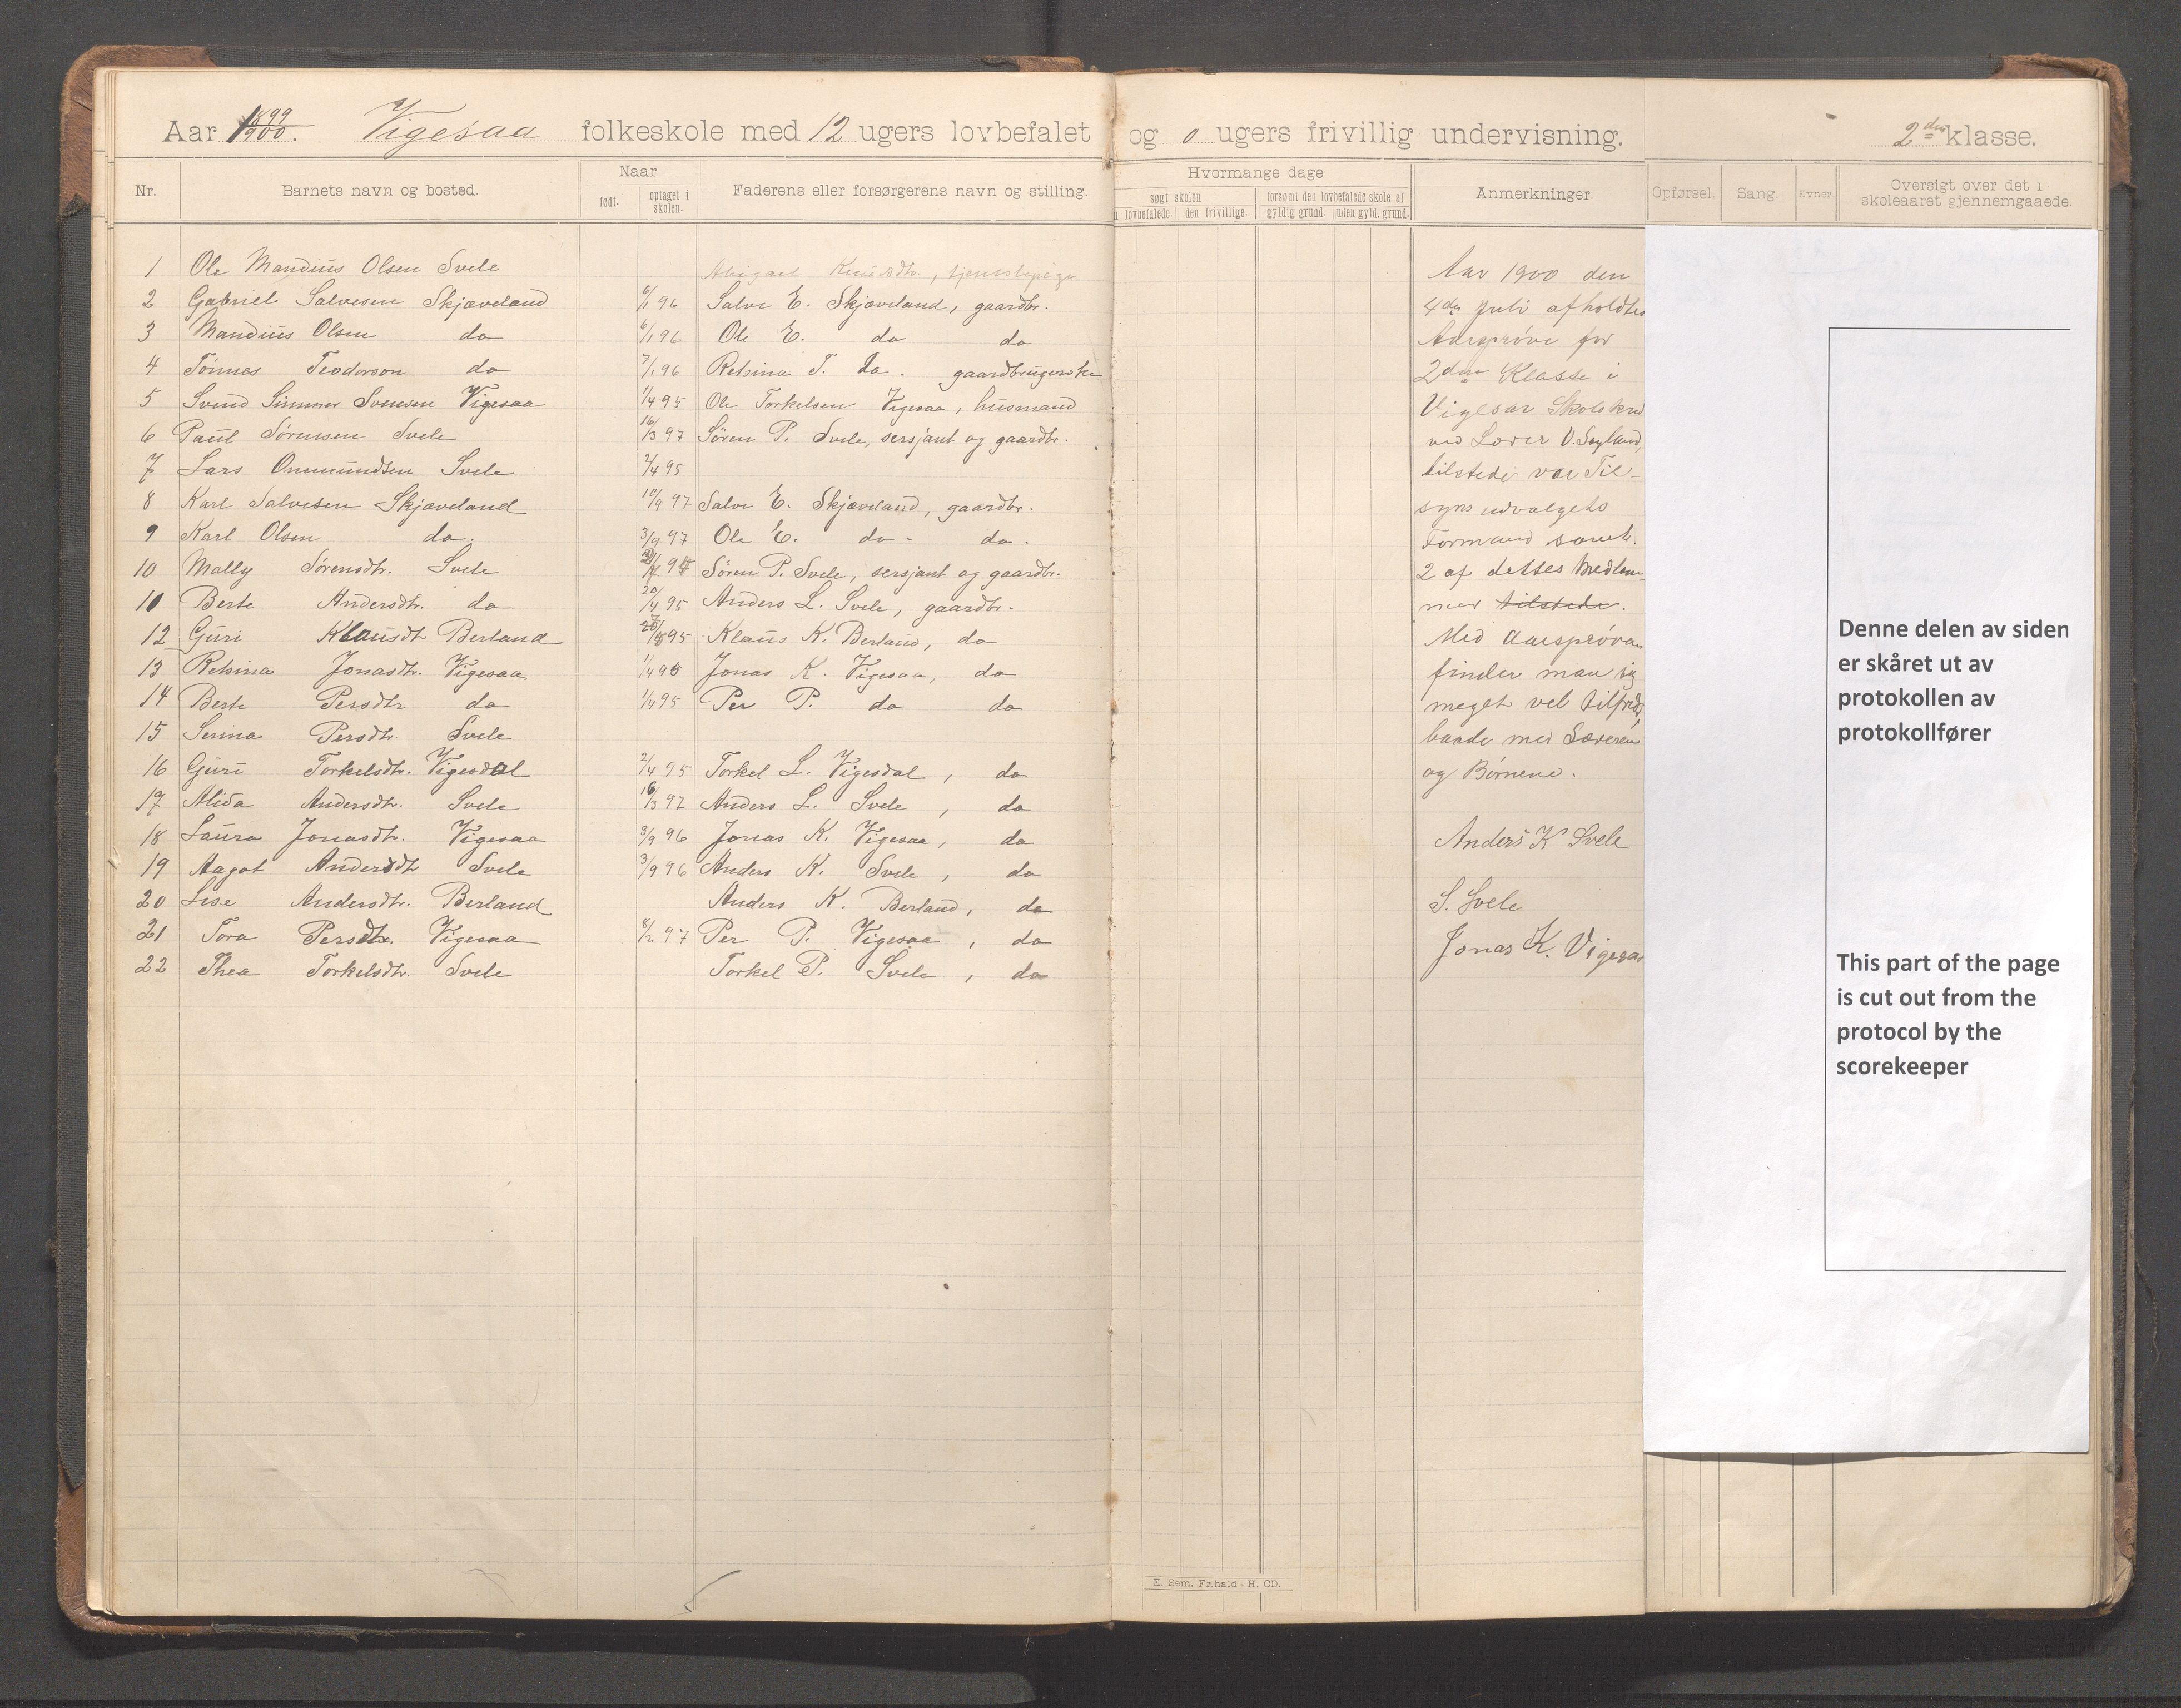 Aar 1899/1900. Vigesaa folkeskole med 12 ugers lovbefalet og 0 ugers frivillig undervisning. 2den klasse.
Nr. Barnets navn og bosted. Naar født. optaget i skolen. Faderens eller forsørgerens navn og stilling. Hvormange dage søgt skolen lovbefalede den frivillige. forsømt den lovbefalede skole af gyldig grund. uden gyld. grund. Anmerkninger. Opførsel Sang. Evner Oversigt over det i skoleaaret gjennemgaaede.
1 Ole Mandius Olsen Svele Abigael Knudsdtr, tjenestepige
2 Gabriel Salvesen Skjæveland 6/1 96 Salve E. Skjæveland, gaardbr.
3 Mandius Olsen do 6/1 96 Ole E. do do
4 Tønnes Teodorson do 7/1 96 Retsina T. do. gaardbrugerske
5 Svend Simmer Svensen Vigesaa 1/4 95 Ole Torkelsen Vigesaa, husmand
6 Paul Sørensen Svele 16/3 97 Søren P. Svele, sersjant og gaardbr.
7 Lars Ommundsen Svele 2/4 95
8 Karl Salvesen Skjæveland 10/9 97 Salve E. Skjæveland, gaardbr.
9 Karl Olsen do. 3/9 97 Ole E. do - do.
10 Mally Sørensdtr. Svele Søren P. Svele, sersjant og gaardbr.
10 Berte Andersdtr. do 20/4 95 Anders L. Svele, gaardbr.
12 Guri Klausdt Berland 95 Klaus K. Berland, do
13 Retsina Jonasdtr. Vigesaa 1/4 95 Jonas K. Vigesaa, do
14 Berte Persdtr do 1/4 95 Per P. do do
15 Serina Persdtr. Svele
16 Guri Torkelsdtr. Vigesdal 2/4 95 Torkel L. Vigesdal, do
17 Alida Andersdtr. Svele 16/3 97 Anders L. Svele, do
18 Laura Jonasdtr. Vigesaa 3/9 96 Jonas K. Vigesaa, do
19 Aagot Andersdt Svele 3/9 96 Anders K. Svele, do
20 Lise Andersdtr. Berland Anders K. Berland, do
21 Tora Persdtr. Vigesaa 8/2 97 Per P. Vigesaa, do
22 Thea Torkelsdtr. Svele Torkel P. Svele, do
Aar 1900 den
4de Juli afholdtes
Aarsprøve for
2den Klasse i
Vigesaa Skolekred
ved Lærer O. Søyland,
tilstede var Til-
synsudvalgets
Formand samt.
2 af dettes Medlem-
mer tilstede.
Med Aarsprøven
finder man sig
meget vel tilfreds,
baade med Læreren
og Børnene.
Anders K Svele
S. Svele
Jonas K. Vigesaa
Denne delen av siden
er skåret ut av
protokollen av
protokollfører
This part of the page
is cut out from the
protocol by the
scorekeeper
E. Sem. Fr.hald - H. CD.